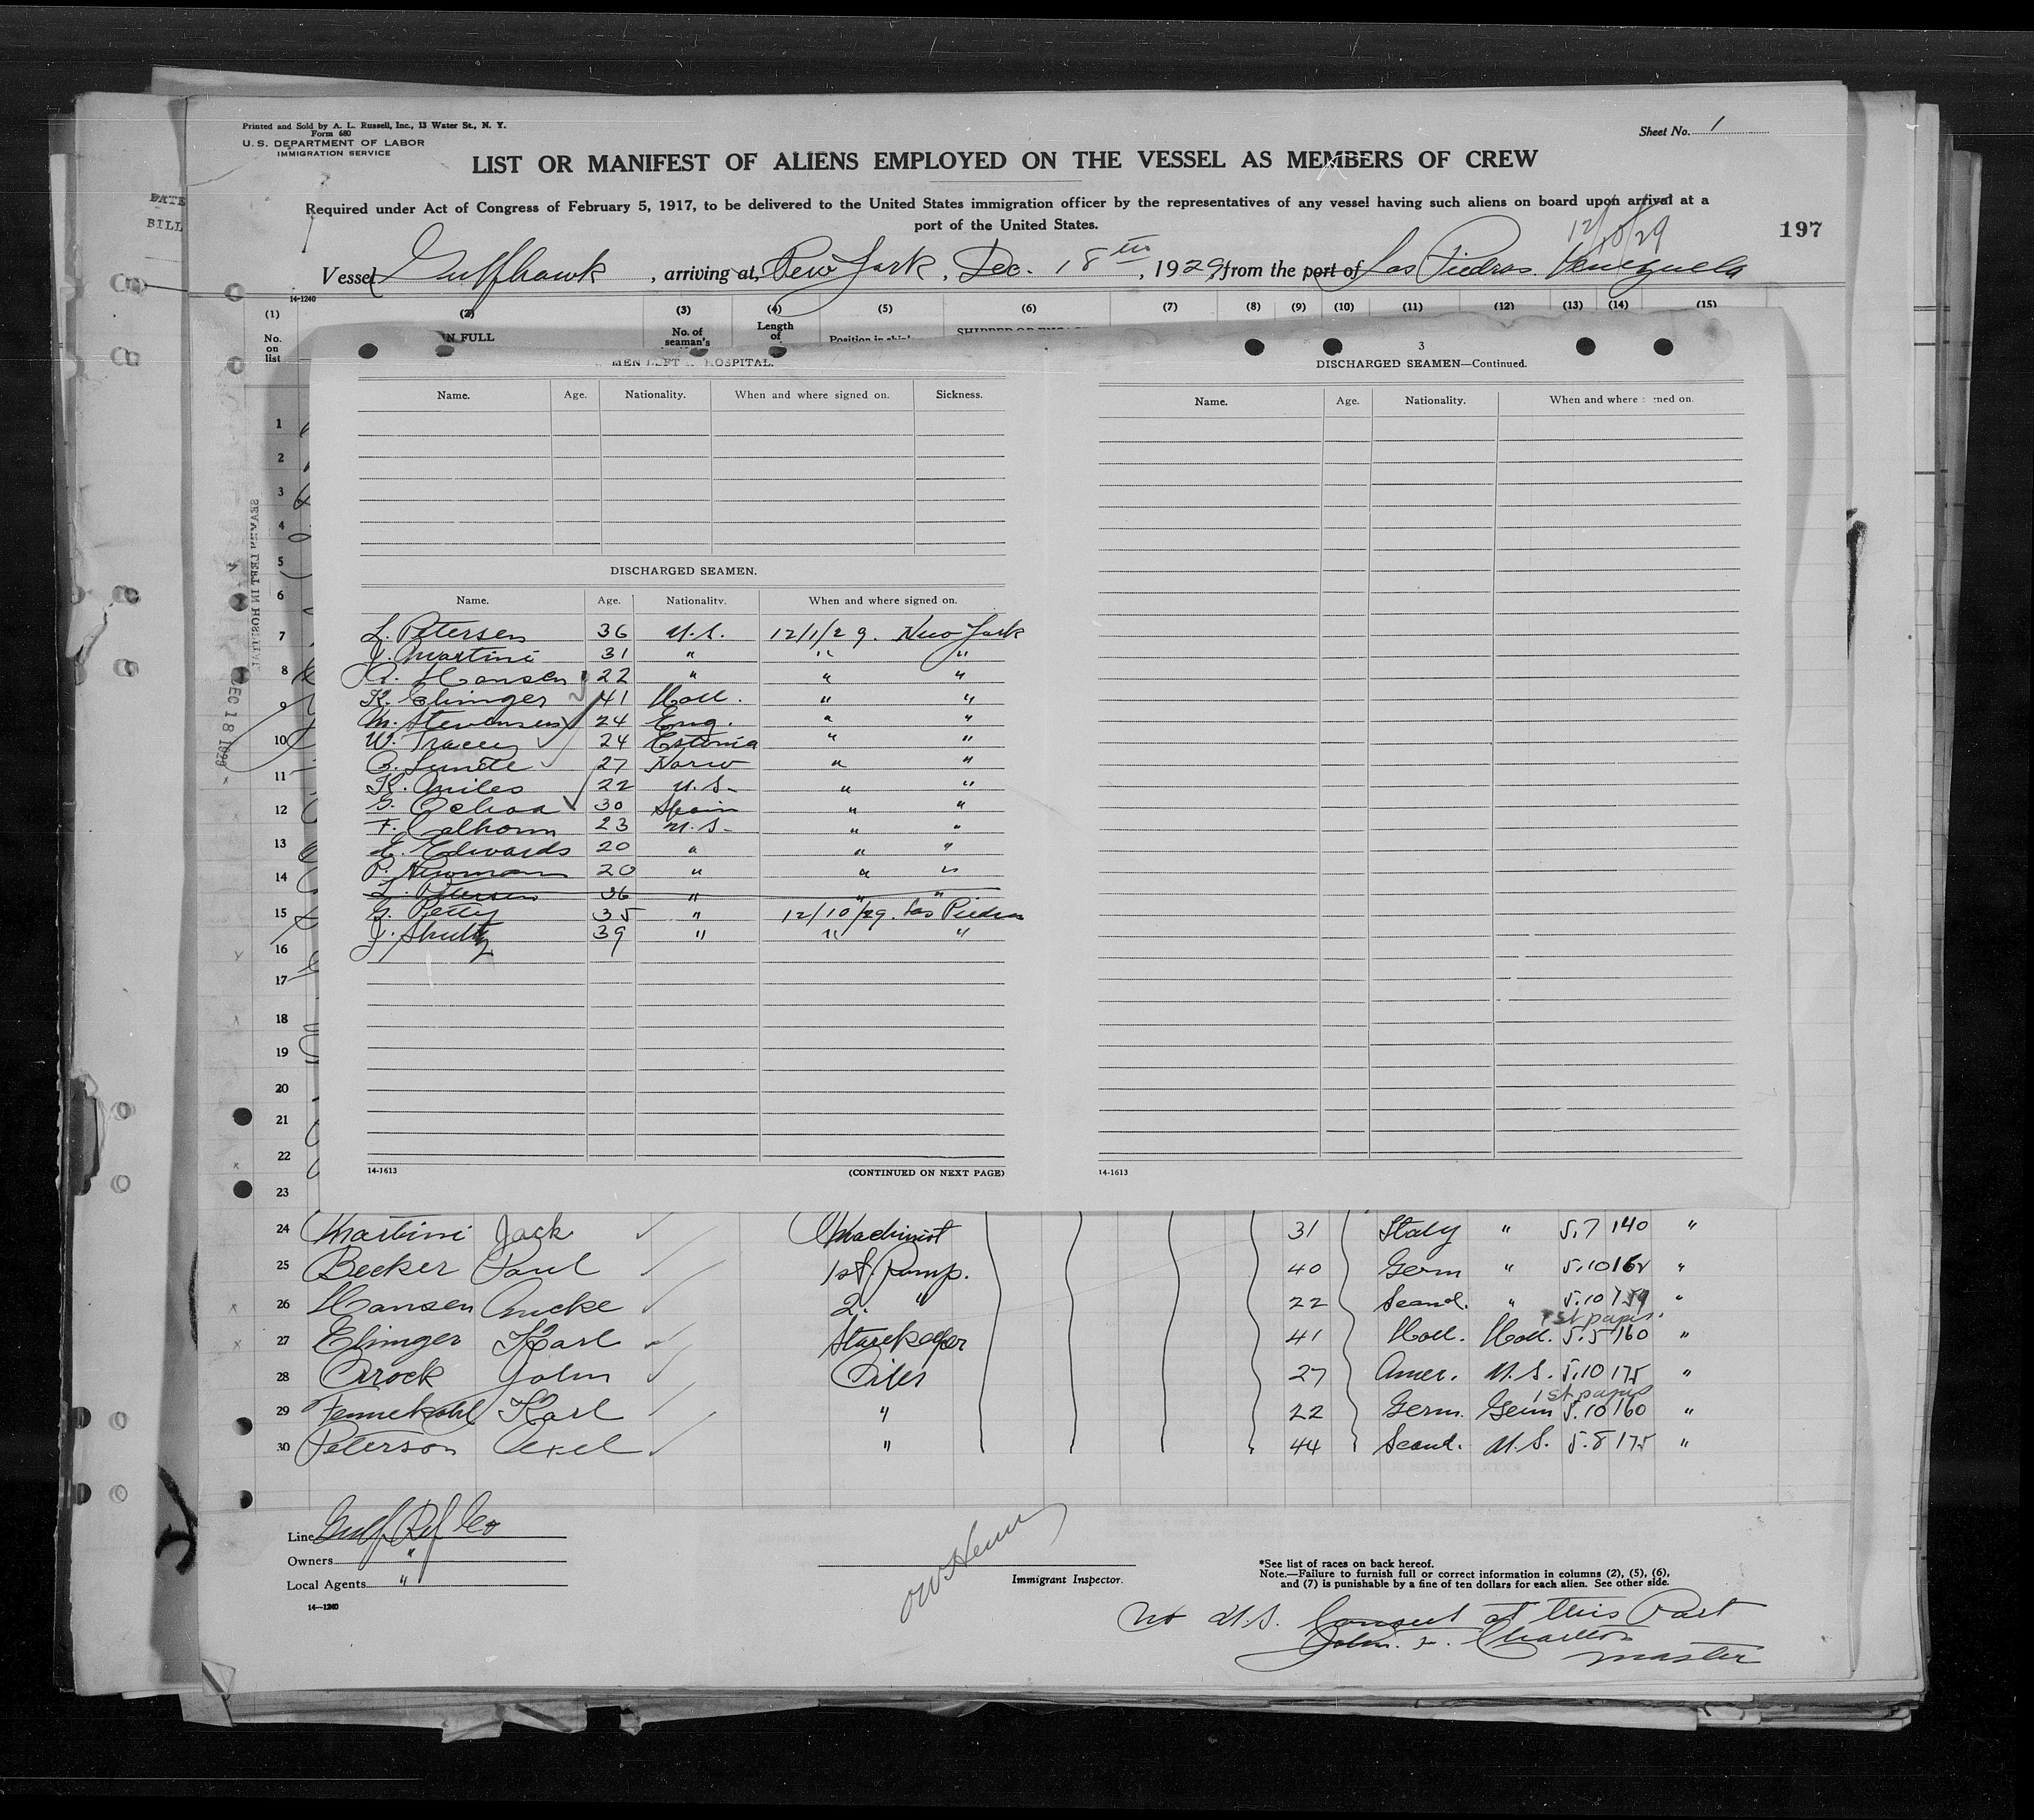 Printed and Sold by A. L. Russell, Inc., 13 Water St., N. Y.
Form 680
U. S. DEPARTMENT OF LABOR
IMMIGRATION SERVICE
Sheet No. 1
LIST OR MANIFEST OF ALIENS EMPLOYED ON THE VESSEL AS MEMBERS OF CREW
Required under Act of Congress of February 5, 1917, to be delivered to the United States immigration officer by the representatives of any vessel having such aliens on board upon arrival at a
port of the United States.
DATE
BILL
12/10/29
197
Vessel Gulfhawk, arriving at New York, Dec. 18th, 1929, from the port of Las Piedras Venezuela
14-1240
(1) (2) (3) (4) (5) (6) (7) (8) (9) (10) (11) (12) (13) (14) (15)
No. on list
N FULL
No. of seaman's
Length of
Position in ship
MEN LEFT HOSPITAL.
Name. Age. Nationality. When and where signed on. Sickness.
3
DISCHARGED SEAMEN—Continued.
Name. Age. Nationality. When and where signed on.
DISCHARGED SEAMEN.
Name. Age. Nationality. When and where signed on.
L. Petersen 36 U.S. 12/1/29. New York
J. Martini 31 " " "
A. Hansen 22 " " "
K. Elinger 41 Holl. " "
M. Stevensen 24 Eng. " "
W. Tracey 24 Estonia " "
B. Lunde 27 Norw " "
K. Miles 22 U.S. " "
G. Ochoa 30 Spain " "
F. Calhoun 23 U.S. " "
E. Edwards 20 " " "
P. Newman 20 " " "
L. Petersen 36 " " "
G. Petty 35 " 12/10/29. Las Piedras
J. Shultz 39 " " "
14-1613
(CONTINUED ON NEXT PAGE)
14-1613
SEAMEN LEFT IN HOSPITAL
DEC 18 1929
1
2
3
4
5
6
7
8
9
10
11
12
13
14
15
16
17
18
19
20
21
22
23
24 Martini Jack Machinist 31 Italy " 5.7 140 "
25 Becker Paul 1st Pump. 40 Germ " 5.10 "
26 Hansen 2. " 22 Scand. " 5.10 159 "
1st papers.
27 Elinger Karl Storekeeper 41 Holl. Holl. 5.5 160 "
28 John Oiler 27 Amer. U.S. 5.10 175 "
1st papers
29 Karl " 22 Germ. Germ 5.10 160 "
30 Peterson Axel " 44 Scand. U.S. 5.8 175 "
Line Gulf Ref Co
Owners "
Local Agents "
14—1240
Immigrant Inspector.
*See list of races on back hereof.
Note.—Failure to furnish full or correct information in columns (2), (5), (6),
and (7) is punishable by a fine of ten dollars for each alien. See other side.
No U.S. Consul at this Port
John Charlton
master